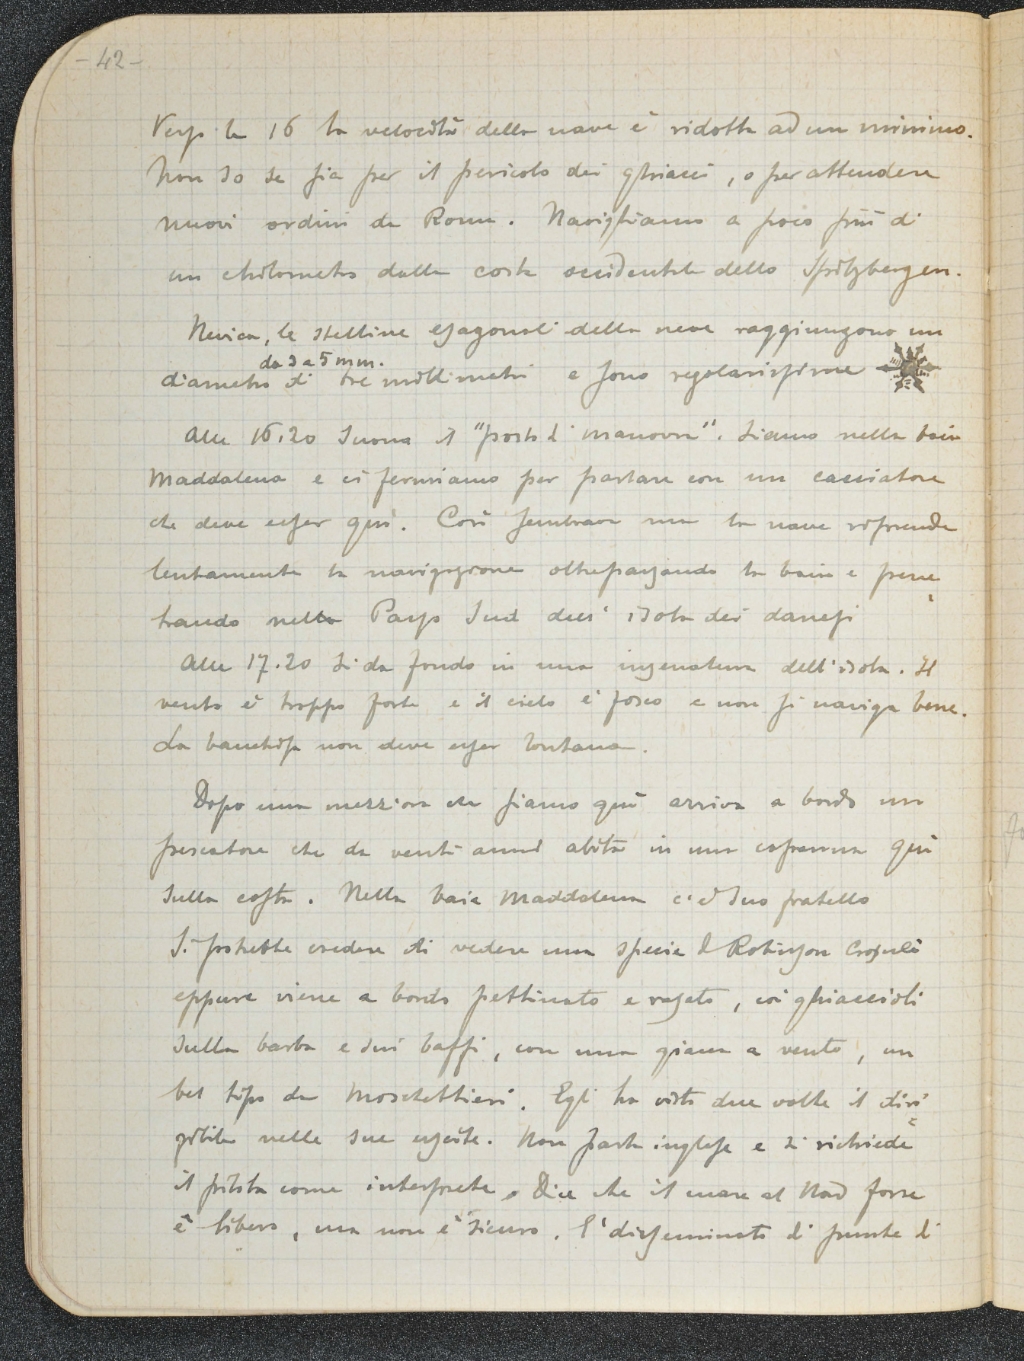 - 42 -
Verso le 16 la velocità della nave è ridotta ad un minimo.
Non so se sia per il pericolo dei ghiacci, o per attendere
nuovi ordini da Roma. Navighiamo a poco più di
un chilometro dalla costa occidentale dello Spitzbergen.
Nevica, le stelline esagonali della neve raggiungono un
da 3 a 5 mm.
diametro di tre millimetri e sono regolarissime
Alle 16.20 suona il "posto di manovra". Siamo nella baia
Maddalena e ci fermiamo per parlare con un cacciatore
che deve esser quì. Così sembrava ma la nave riprende
lentamente la navigazione oltrepassando la baia e pene
trando nella Passo Sud dell' isola dei danesi
Alle 17.20 si da fondo in una insenatura dell'isola. Il
vento è troppo forte e il cielo è fosco e non si naviga bene.
La banchisa non deve esser lontana.
Dopo una mezz'ora che siamo quì arriva a bordo un
pescatore che da venti anni abita in una capanna quì
sulla costa. Nella baia Maddalena c'è il suo fratello
Si potrebbe credere di vedere una specie di Robinson Crosuè
eppure viene a bordo pettinato e rasato, coi ghiaccioli
sulla barba e sui baffi, con una giacca a vento, un
bel tipo da Moschettieri. Egli ha visto due volte il diri
gibile nelle sue uscite. Non parla inglese e si richiede
il pilota come interprete. Dice che il mare al Nord forse
è libero, ma non è sicuro. È disseminato di punte di